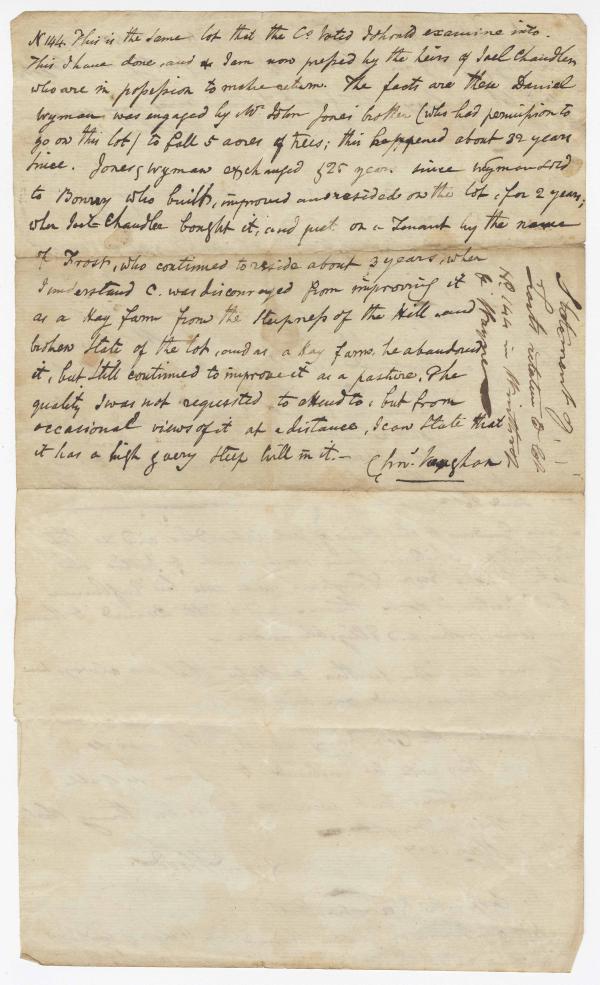 N 144. This is the Same lot that the Co Voted I should examine into.
This I have done, and & I am now pressed by the heirs of Joel Chandler
who are in possession to make return. The facts are these Daniel
Wyman was engaged by Mr John Jones' brother (who had permission to
go on this lot) to fall 5 acres of trees; this happened about 32 years
Since. Jones & Wyman exchanged & 25 years since Wyman Sold
to Bonney who built, improved and resided on the lot, for 2 years;
when Joel Chandler bought it; and put on a Tenant by the name
of Frost, who continued to reside about 3 years, when
I understand C. was discouraged from improving it
as a Hay farm from the Steepness of the Hill and
broken State of the lot, and as a Hay farm he abandoned
it, but Still continued to improve it as a pasture. The
quality I was not requested to attend to, but from
occasional views of it at a distance, I can State that
it has a high & very Steep hill in it.—
Vaughan
Statement of
facts relative to lot
No 144 in Winthrop